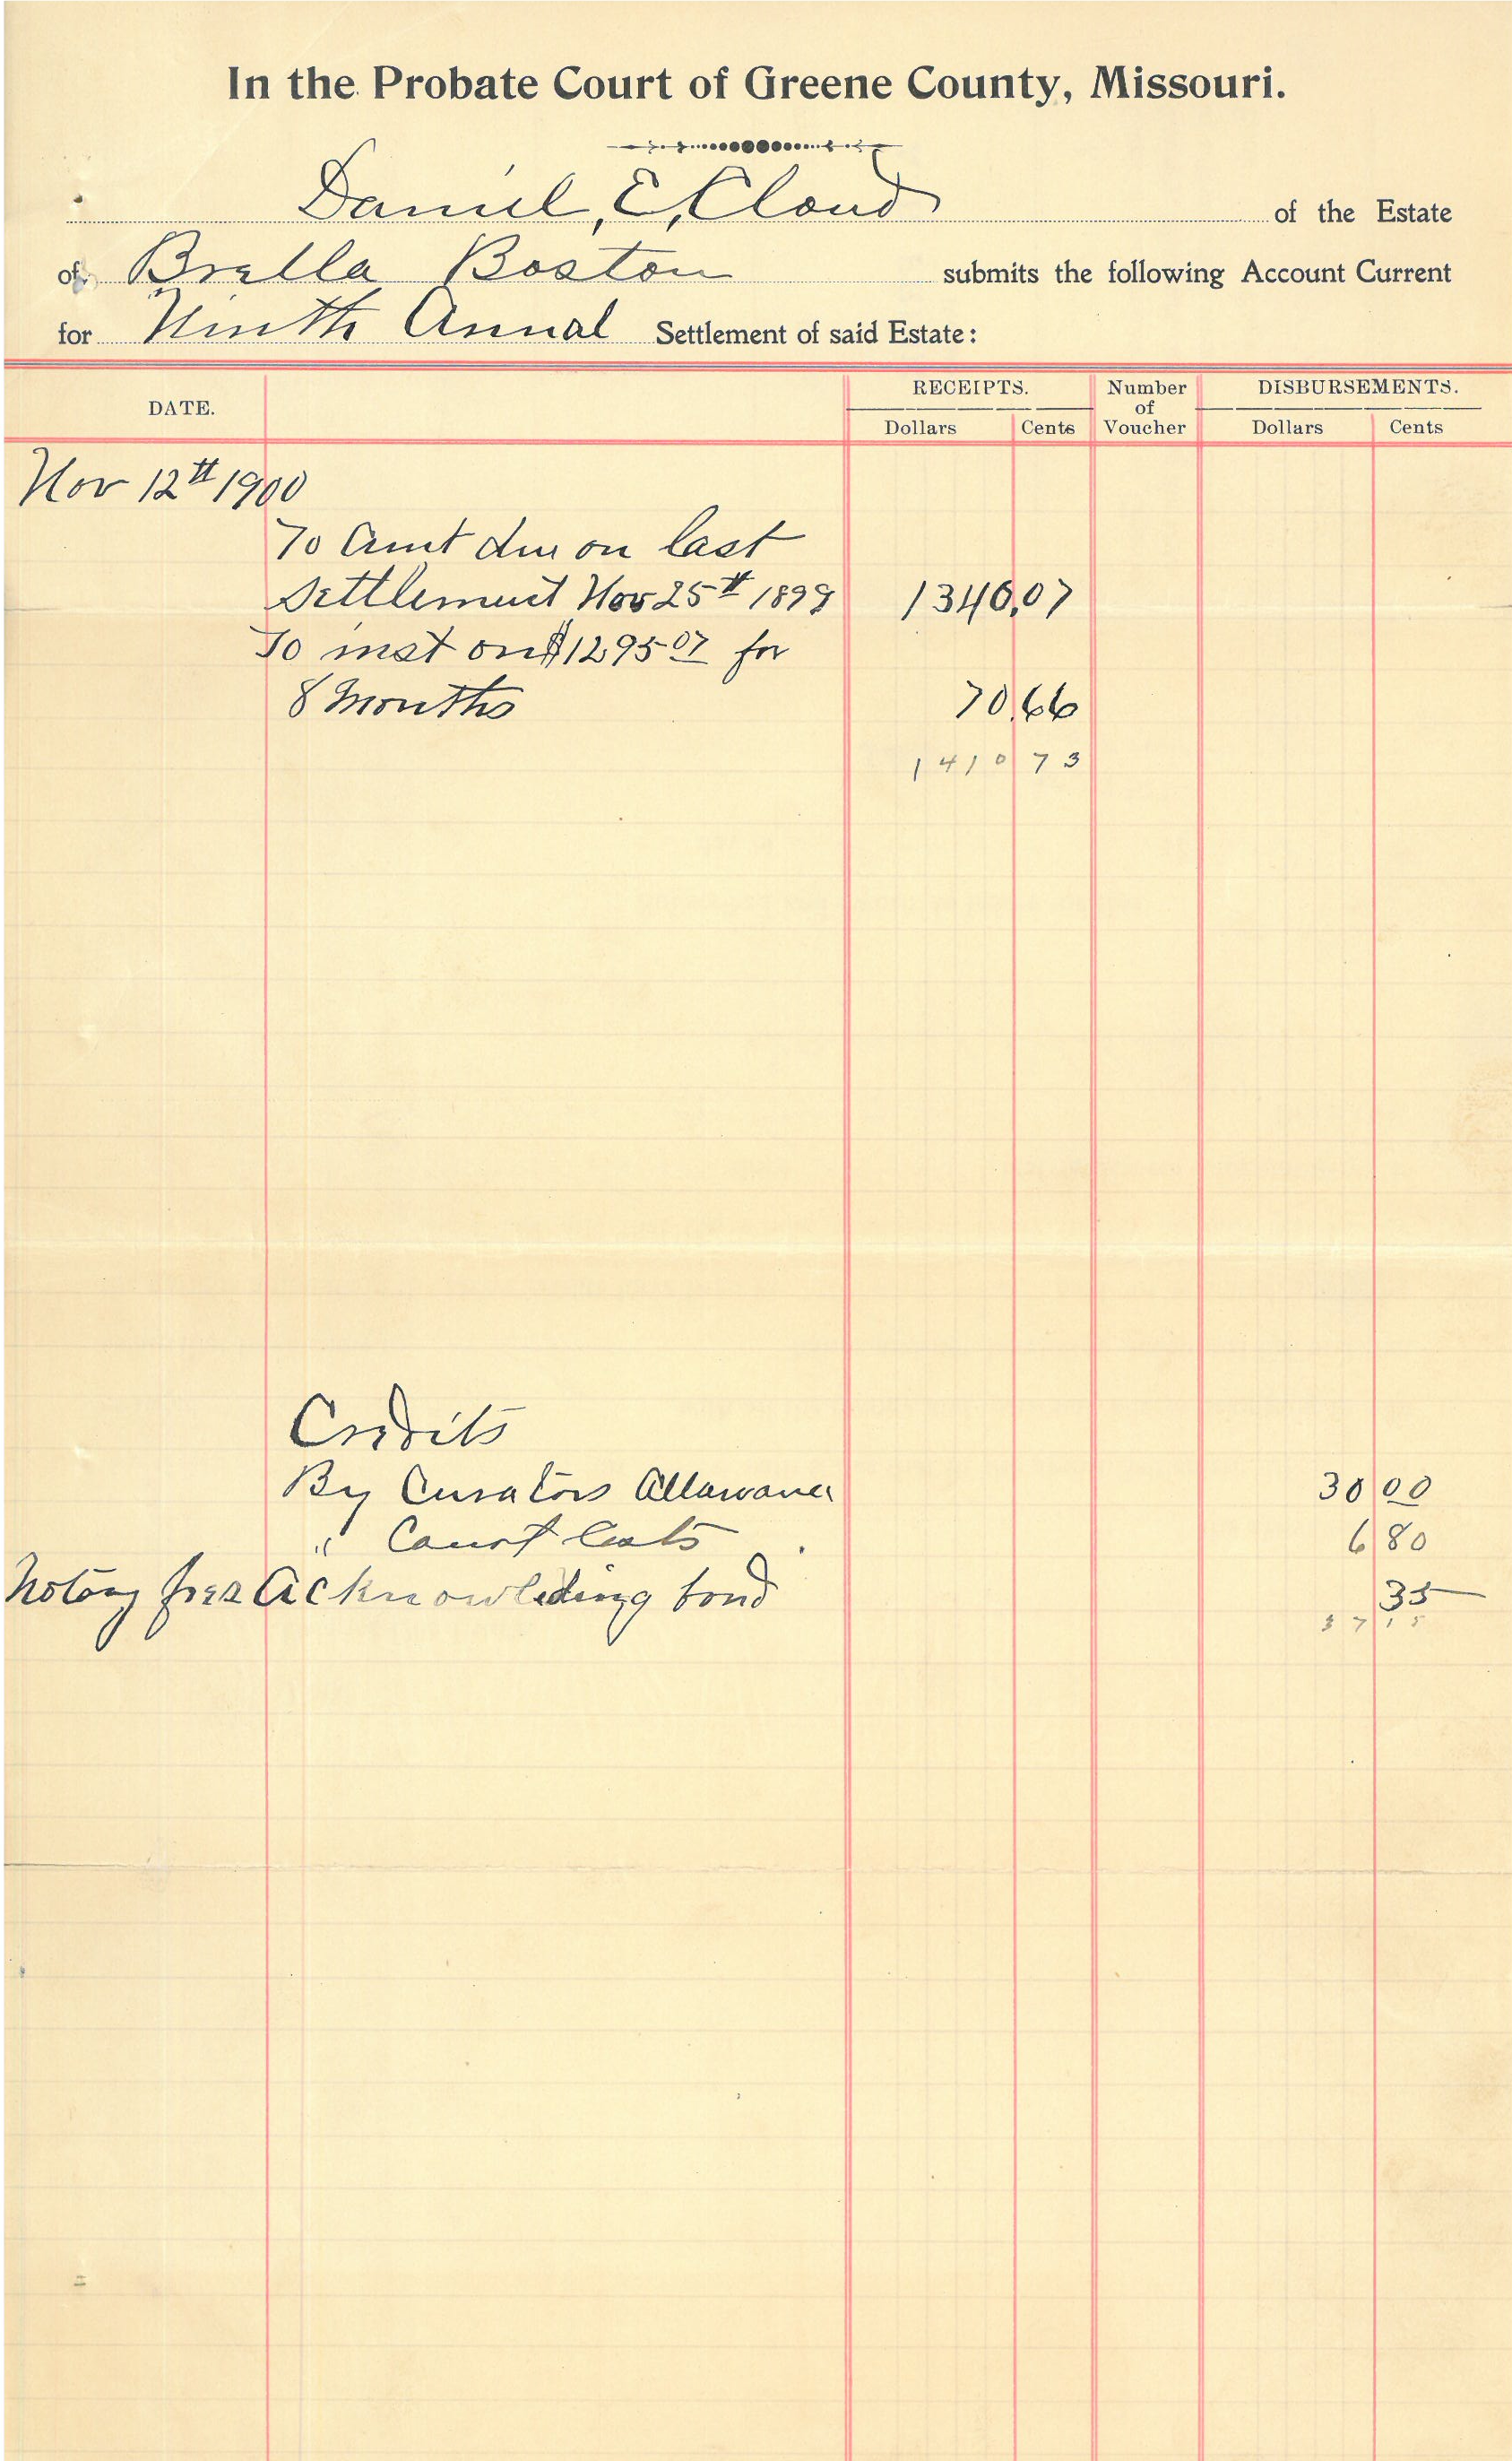 In the Probate Court of Greene County, Missouri.
Daniel, E, Cloud of the Estate
of Bralla Boston submits the following Account Current
for Ninth Annual Settlement of said Estate:
DATE. RECEIPTS. Number of Voucher DISBURSEMENTS.
Dollars Cents Dollars Cents
Nov 12th 1900
To Amt due on last
Settlement Nov 25th 1899 1340,07
To inst on $1295 07 for
8 Months 70,66
1410 73
Credits
By Curators Allowance 30 00
" Court Costs 6 80
Notary fees Acknowleding bond 35
37 15